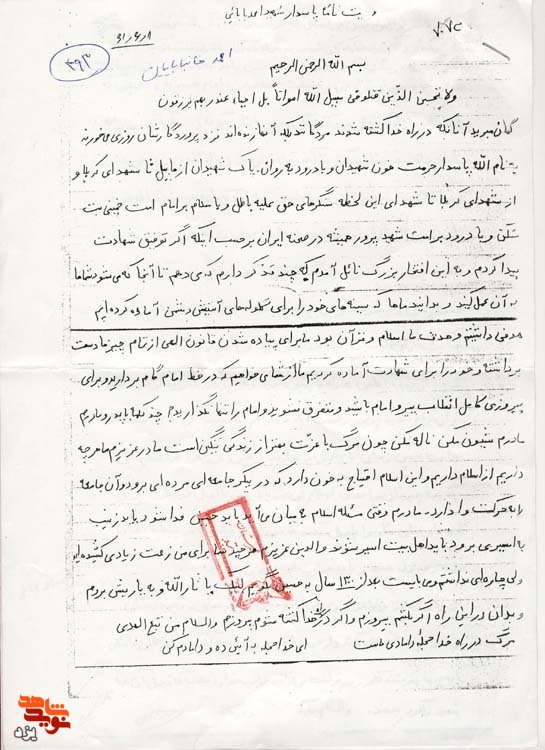 وصیت نامه پاسدار شهید احمد بابائی
۷۰۷۵
۳۱/۶/۸
۳۹۳
احمد خانبابائیان
بسم الله الرحمن الرحیم
ولا تحسبن الذین قتلوا فی سبیل الله امواتاً بل احیاء عند ربهم یرزقون
گمان مبرید آنانکه در راه خدا کشته شوند مردگانند بلکه آنها زنده‌اند نزد پروردگارشان روزی میخورند
به نام الله پاسدار حرمت خون شهیدان و با درود به روان پاک شهیدان از هابیل تا شهدای کربلا و
از شهدای کربلا تا شهدای این لحظه سنگرهای حق علیه باطل و با سلام بر امام امت خمینی بت
شکن و با درود بر امت شهید پرور همیشه در صحنه ایران بر حسب اینکه اگر توفیق شهادت
پیدا کردم و به این افتخار بزرگ نائل آمدم چند تذکر دارم که می‌دهم تا آنجا که می‌شود شماها
به آن عمل کنید و بدانید ماها که سینه‌های خود را برای گلوله‌های آتشین دشمن آماده کرده‌ایم
هدفی داشتیم و هدف ما اسلام و قرآن بود ما برای پیاده شدن قانون الهی از تمام چیزها دست
برداشته و خود را برای شهادت آماده کردیم ما از شما می‌خواهیم که در خط امام گام بردارید و برای
پیروزی کامل انقلاب پیرو امام باشید و متفرق نشوید و امام را تنها نگذارید چند کلمه با پدر و مادرم
مادرم شیون مکن ناله مکن چون مرگ با عزت بهتر از زندگی ننگین است مادر عزیزم ما هر چه
داریم از اسلام داریم و این اسلام احتیاج به خون دارد که در پیکر جامعه‌ای مرده‌ای برود و آن جامعه
را به حرکت وا دارد. مادرم وقتی مسئله اسلام به میان می‌آید باید حسین فدا شود باید زینب
به اسیری برود باید اهل بیت اسیر شوند والدین عزیزم هر چند شما برای من زحمت زیادی کشیده‌اید
ولی چاره‌ای نداشتم و می‌بایست بعد از ۱۳۰۰ سال به حسین بگویم لبیک یا ثارالله و به یاریش بروم
و بدان در این راه اگر بکشم پیروزم و اگر در راه خدا کشته شوم پیروزم والسلام من تبع الهدی
مرگ در راه خدا حجله دامادی ماست ای خدا حجله به آئین ده و دامادم کن
نوید شاهد
یزد